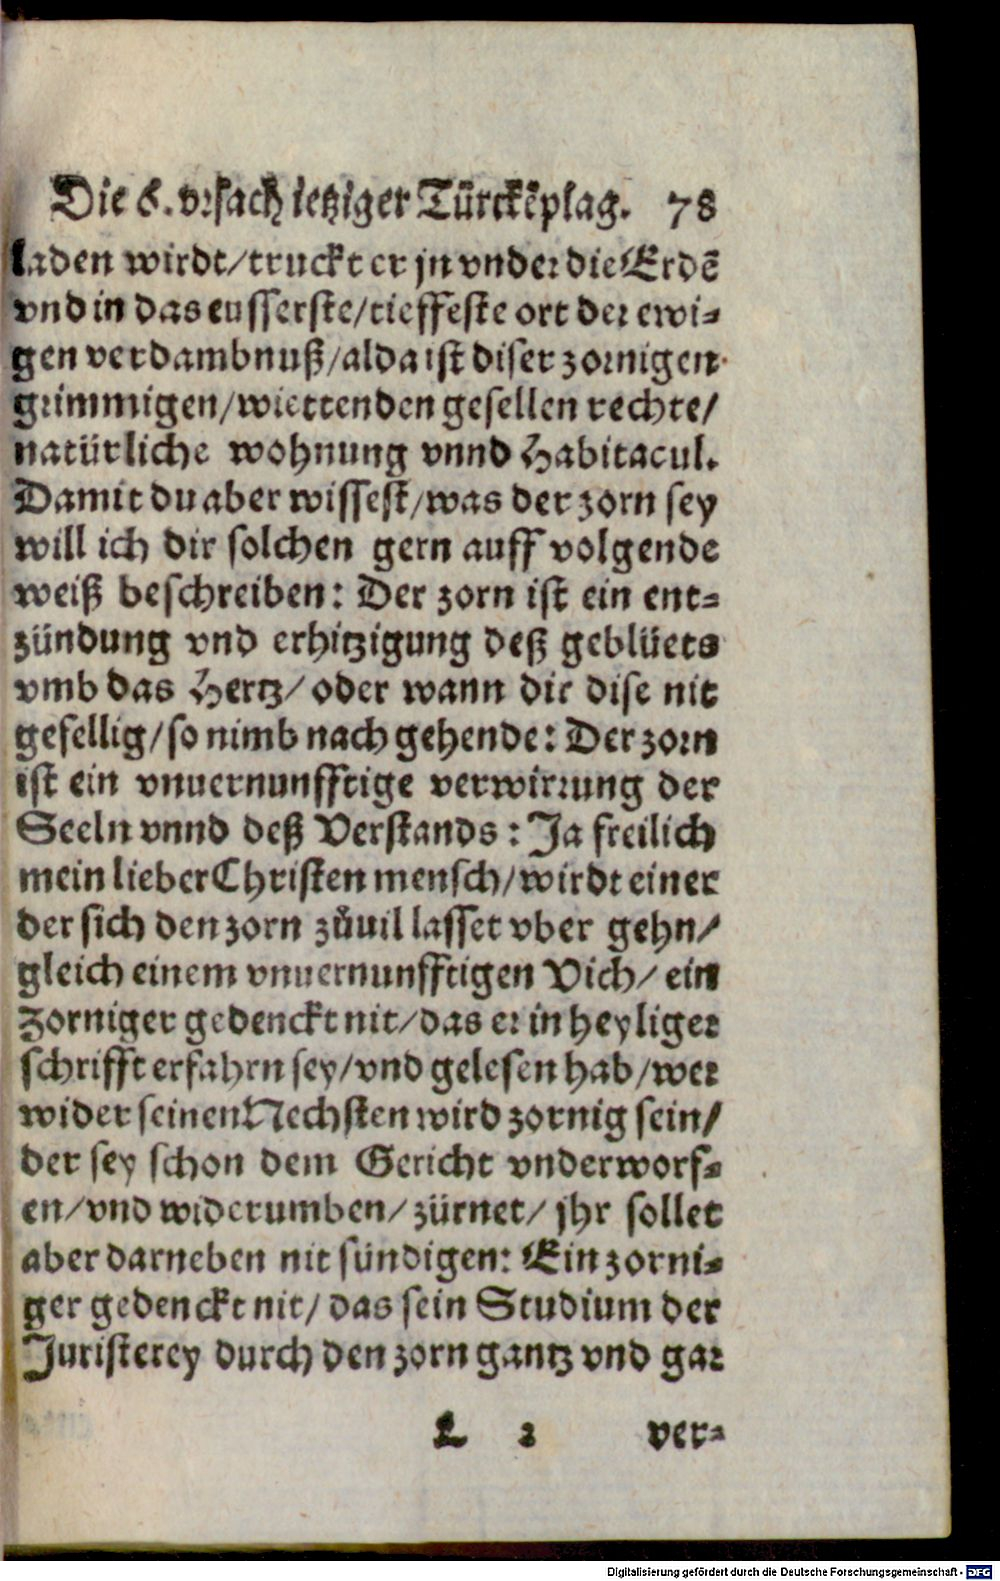 Die 6. vrsach ietziger Türckẽplag. 78
laden wirdt/truckt er jn vnder die Erdẽ
vnd in das eusserste/tieffeste ort der ewi-
gen verdambnuß/alda ist diser zornigen
grimmigen/wiettenden gesellen rechte/
natürliche wohnung vnnd Habitacul.
Damit du aber wissest/was der zorn sey
will ich dir solchen gern auff volgende
weiß beschreiben: Der zorn ist ein ent-
zündung vnd erhitzigung deß geblüets
vmb das Hertz/ oder wann dir dise nit
gefellig/so nimb nach gehende: Der zorn
ist ein vnuernunfftige verwirrung der
Seeln vnnd deß Verstands: Ja freilich
mein lieber Christen mensch/wirdt einer
der sich den zorn zůuil lasset vber gehn/
gleich einem vnuernunfftigen Vich/ ein
zorniger gedenckt nit/das er in heyliger
schrifft erfahrn sey/vnd gelesen hab/wer
wider seinen Nechsten wird zornig sein/
der sey schon dem Gericht vnderworf-
en/vnd widerumben/zürnet/ jhr sollet
aber darneben nit sündigen: Ein zorni-
ger gedenckt nit/ das sein Studium der
Juristerey durch den zorn gantz vnd gar
L 2 ver-
Digitalisierung gefördert durch die Deutsche Forschungsgemeinschaft - DFG